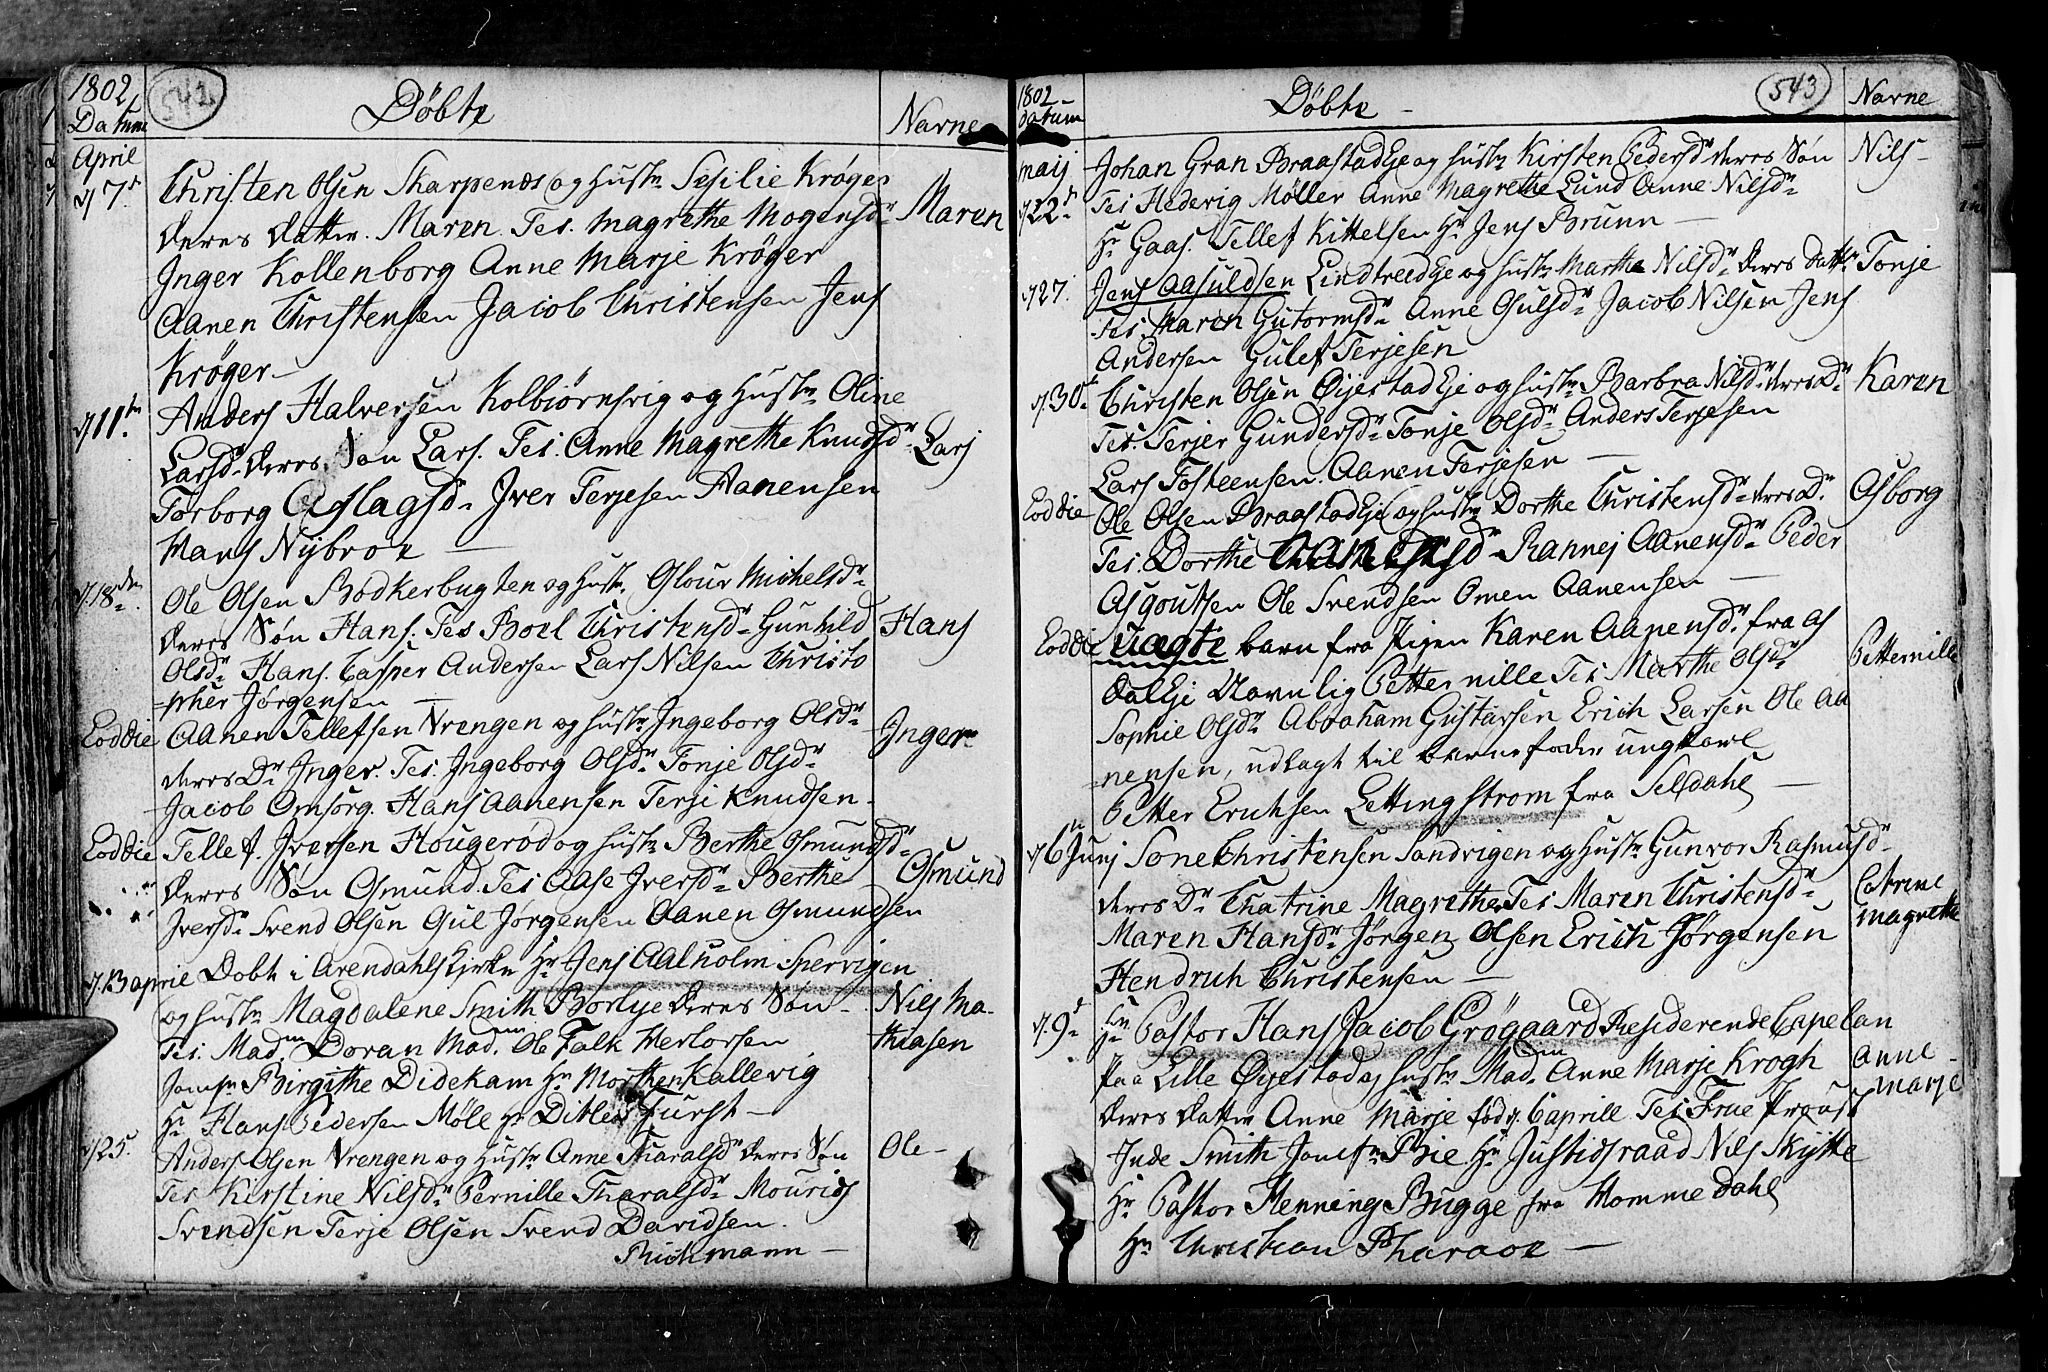 1802 542
Datum Døbte Navne
April
d 7de Christen Olsen Skarpenæs og Hustr Sesilie Krøger Maren
deres datter Maren. Tes. Magrethe Mogensdr
Inger Kollenborg Anne Marje Krøger
Aanen Christensen Jacob Christensen Jens
Krøger
d 11te Anders Halversen Kolbiørnsvig og Hustr Oline
Larsdr deres Søn Lars. Tes. Anne Magrethe Knudsdr Lars
Torborg Aslagsdr Iver Terjesen Aanensen
Hans Nybroe
d 18den Ole Olsen Bodkerbugten og Hustr. Glour Michelsdr
deres Søn Hans. Tes Boel Christensdr Gunhild Hans
Olsdr Hans Casper Andersen Lars Nilsen Christo
=pher Jørgensen
Eoddie Aanen Tellefsen Vrengen og Hustr Ingeborg Olsdr Inger
deres Dr Inger. Tes. Ingeborg Olsdr Tonje Olsdr
Jacob Omsorg. Hans Aanensen Terje Knudsen
Eoddie Tellef. Iversen Hougerød og Hustr Berthe Osmundsdr
deres Søn Osmund. Tes Aase Iversdr Berthe Osmund
Iversdr Svend Olsen Gul Jørgensen Aanen Osmundsen
d. 13 aprile Døbt i Arendahls Kjrke Hr Jens Aalholm Spervigen
og Hustr Magdalene Smith Borlye deres Søn Nils Ma-
Tes. Madm Doran Madm Ole Falk Herlofsen thiasen
Jomfr Birgithe Didekam Hr Morthen Kallevig
Hr Hans Pedersen Møll Hr Ditlev Furst
d 25. Anders Olsen Vrengen og Hustr Anne Tharalsdr deres Søn Ole
Tes Kirstine Nilsdr Pernille Tharalsdr Mourids
Svendsen Terje Olsen Svend Davidsen.
Richmann
1802 543
datum Døbte Navne
maij Johan Gran Braastad Eje og Hustr Kirsten Pedersdr deres Søn Nils
d 22de Tes Hedevig Møller Anne Magrethe Lund Anne Nilsdr
Hr Gaas. Tellef Kittelsen Hr Jens Brunn
d 27. Jens Aasuldsen Lindtved Eje og Hustr Marthe Nilsdr deres dattr Tonje
Tes Maren Gutormsdr Anne Gulsdr Jacob Nilsen Jens
Andersen Gulef Terjesen
d. 30te Christen Olsen Øjestad Eje og Hustr Barbra Nilsdr deres Dr Karen
Tes. Terjer Gundersdr Tonje Olsdr Anders Terjesen
Lars Tosteensen. Aanen Terjesen
Eoddie Ole Olsen Braastad Eje og Hustr Dorthe Christensdr deres Dr. Asborg
Tes. Dorthe Aanensdr Rannej Aanensdr Peder
Asgoutsen Ole Svendsen Omen Aanensen
Eoddie uægte barn fra Pigen Karen Aanensdr fra As
dal Eje Navnlig Petternille Tes Marthe Olsdr Petternille
Sophie Olsdr Abraham Gustavsen Erich Larsen Ole Aa
=nensen, udlagt til barnefader ungkarl
Petter Erichsen Lettingstrom fra Seldahl
d 6 Junj Sone Christensen Sandvigen og Hustr Gunvor Rasmusdr
deres Dr Chatrine Magrethe Tes Maren Christensdr Catrine
Maren Hansdr Jørgen Olsen Erich Jørgensen magrethe
Hendrich Christensen
d. 9de Hr Pastor Hans Jacob Grøgaard Residerende Capelan
paa Lille Øjestad og Hustr Madm Anne Marje Krogh Anne
deres datter Anne Marje fød d. 6 aprill Tes Frue Proust Marje
Inde Smith Jomfr Bie Hr Justidsraad Nils Skytte
Hr Pastor Henning Bugge fra Homme Dahl
Hr Christian Pharaoe